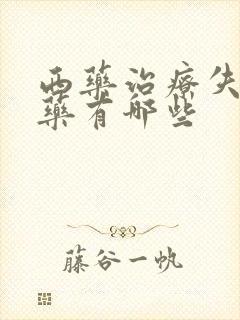 西藥治療失
藥有哪些
藤谷一帆